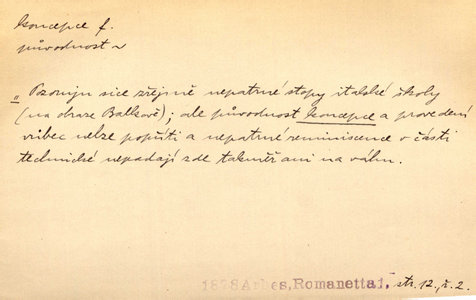 koncepce f.
původnost ~
„ Pozoruji sice zřejmě nepatrné stopy italské školy
(na obraze Balkově); ale původnost koncepce a provedení
vůbec nelze popříti a nepatrné reminiscence v části
technické nepadají zde takměř ani na váhu.
1878 Arbes, Romanetta I, str. 12, ř. 2.